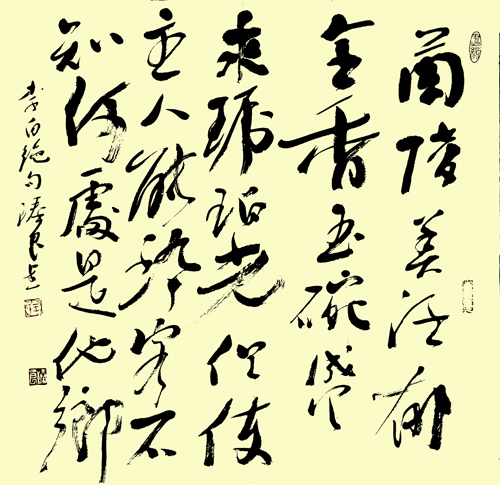 蘭陵美酒郁
金香玉碗盛
來琥珀光但使
主人能醉客不
知何處是他鄉
李白絶句